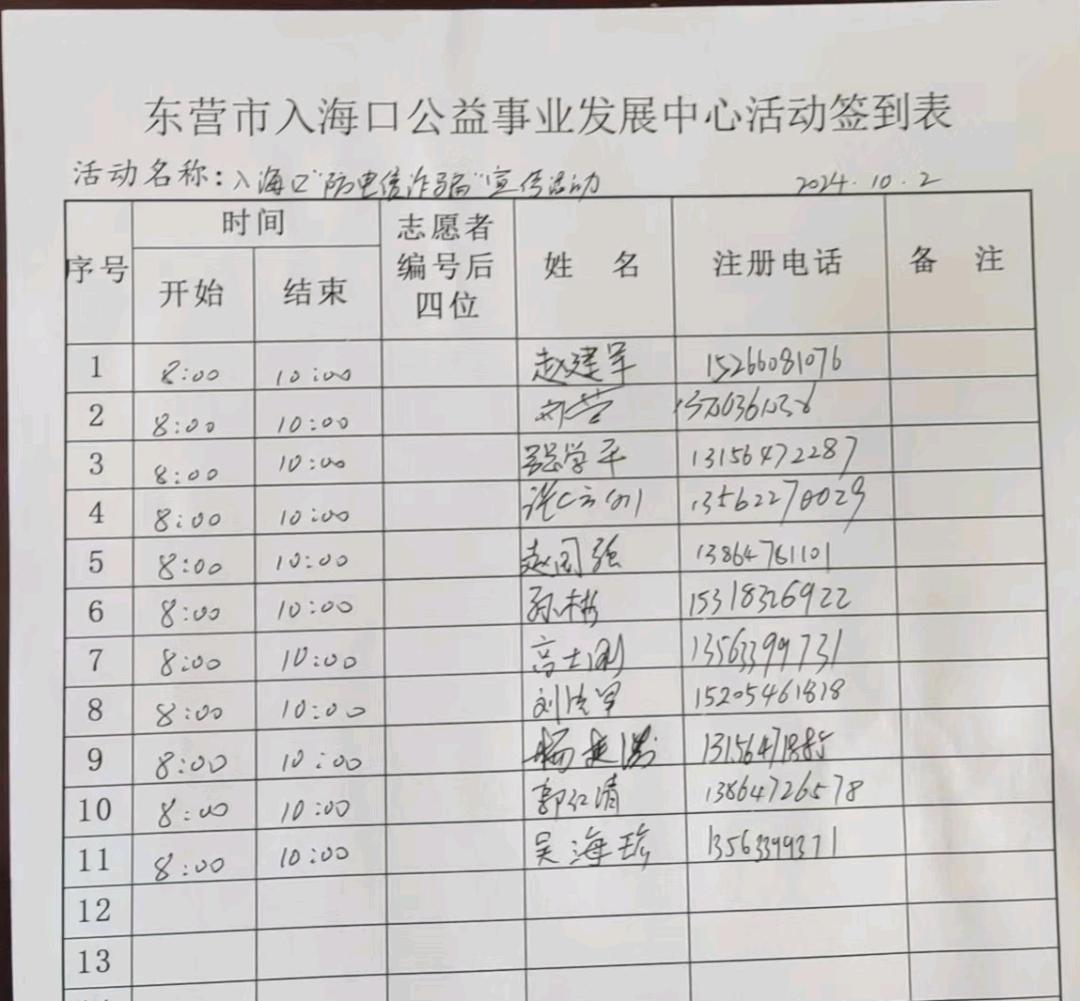 东营市入海口公益事业发展中心活动签到表
活动名称：入海口"防电信诈骗"宣传活动 2024.10.2
序号 时间 志愿者编号后四位 姓名 注册电话 备注
开始 结束
1 8:00 10:00 赵建军 15266081076
2 8:00 10:00 刘营
3 8:00 10:00 张学平 13156472287
4 8:00 10:00 13562270029
5 8:00 10:00 赵国强 13864761101
6 8:00 10:00 孙彬 15318326922
7 8:00 10:00 高士刚 13563399731
8 8:00 10:00 15205461818
9 8:00 10:00
10 8:00 10:00 郭红清 13864726578
11 8:00 10:00 吴海珍
12
13